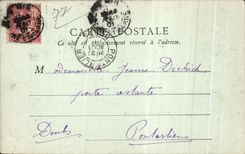 77
CARTE POSTALE
Ce côté est exclusivement réservé à l'adresse.
PONTARLIER
M
ademoiselle Jeanne Dietrich
poste restante
Doubs Pontarlier